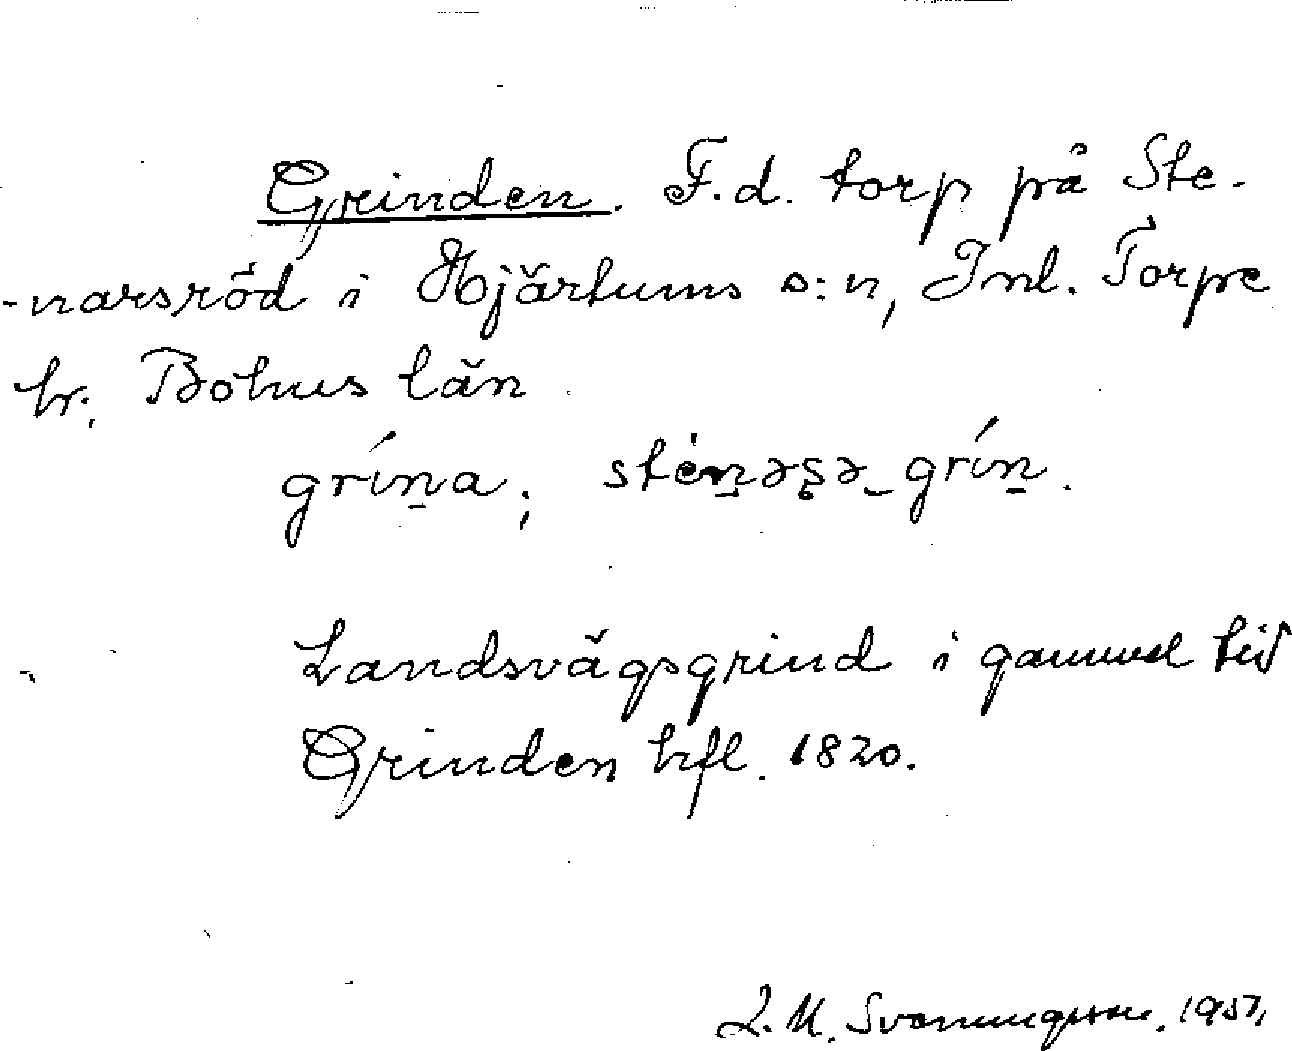 Grinden. F.d. torp på Ste-
-narsröd i Hjärtums s:n, Inl. Torpe
hr. Bohus län
grín̠a; sténəʂə_grín̠.
Landsvägsgrind i gammal tid
Grinden hfl. 1820.
Svenungsson. 1957,